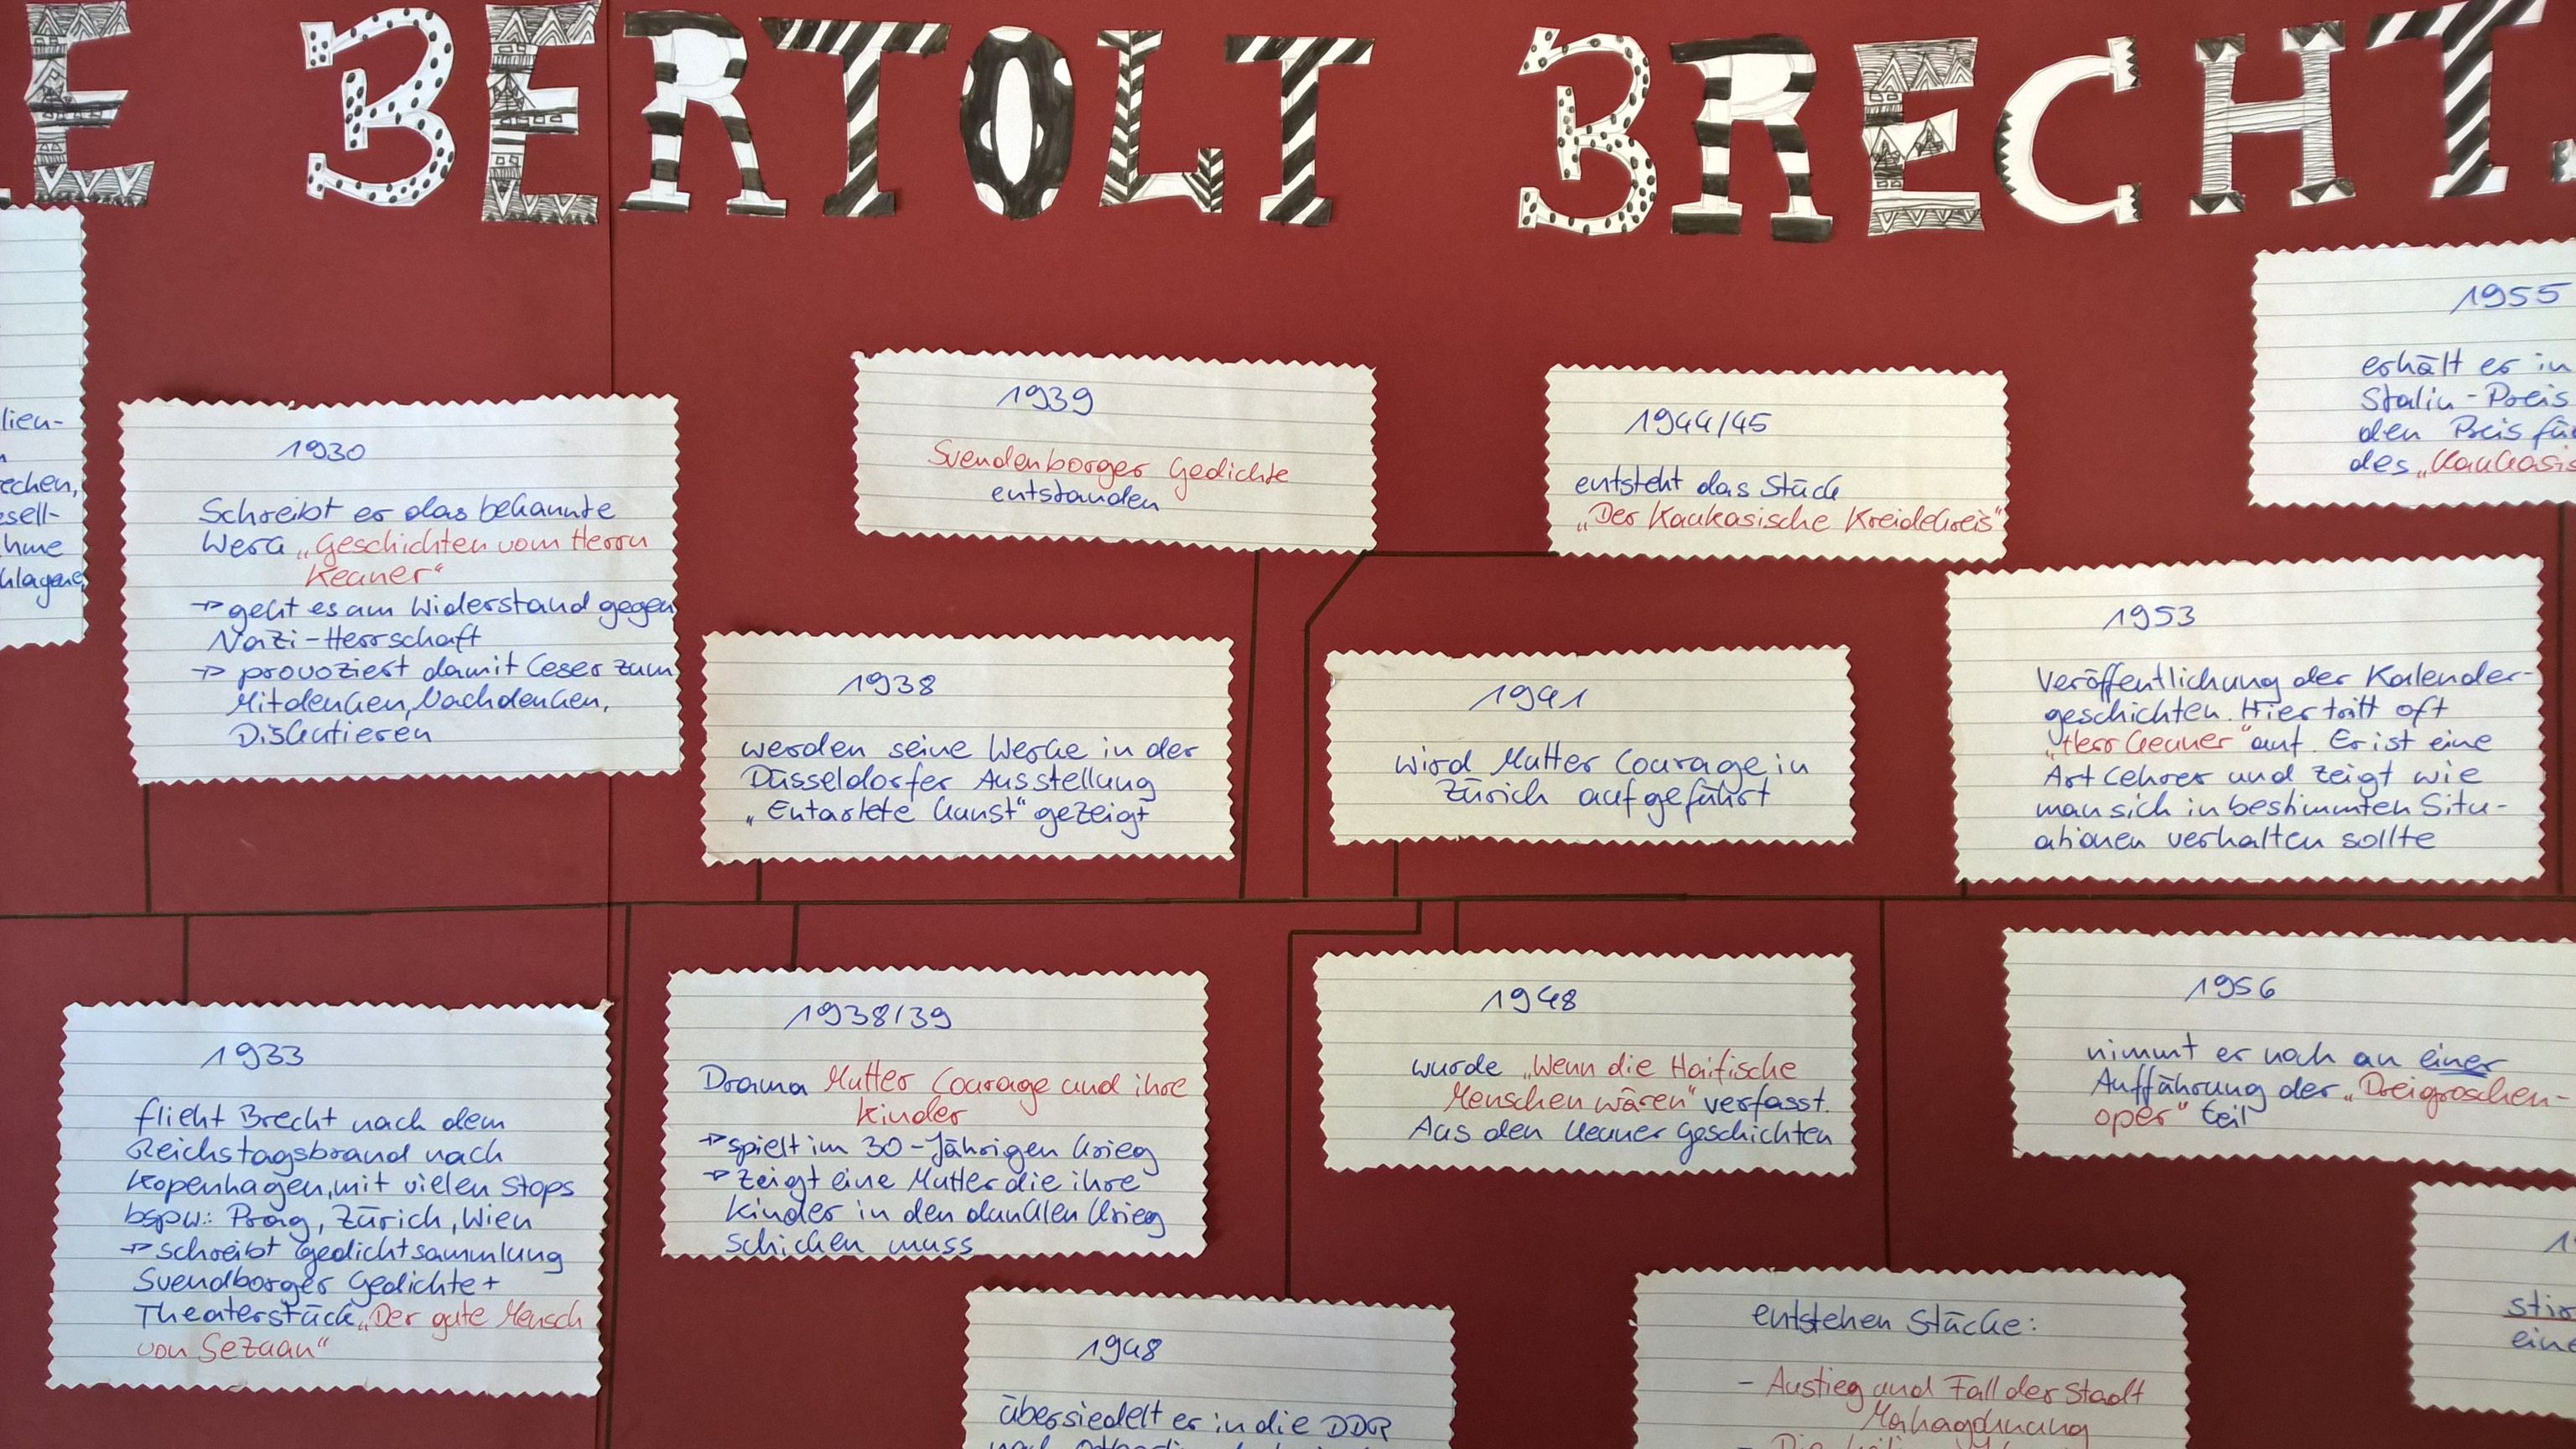 E BERTOLT BRECHT.
lien-
echen,
sell-
hme
hlagene,
1930
Schreibt er das bekannte
Werk „Geschichten vom Herrn
Keuner“
→ geht es um Widerstand gegen
Nazi-Herrschaft
→ provoziert damit Leser zum
Mitdenken, Nachdenken,
Diskutieren
1939
Svendenborger Gedichte
entstanden
1944/45
entsteht das Stück
„Der Kaukasische Kreidekreis“
1955
erhält er in
Stalin-Preis
den Preis für
des „Kaukasis
1938
werden seine Werke in der
Düsseldorfer Ausstellung
„Entartete Kunst“ gezeigt
1941
wird Mutter Courage in
Zürich aufgeführt
1953
Veröffentlichung der Kalender-
geschichten. Hier tritt oft
„Herr Keuner“ auf. Er ist eine
Art Lehrer und zeigt wie
man sich in bestimmten Situ-
ationen verhalten sollte
1933
flieht Brecht nach dem
Reichstagsbrand nach
Kopenhagen, mit vielen Stops
bspw.: Prag, Zürich, Wien
→ schreibt Gedichtsammlung
Svendborger Gedichte +
Theaterstück „Der gute Mensch
von Sezuan“
1938/39
Drama Mutter Courage und ihre
Kinder
→ spielt im 30-Jährigen Krieg
→ zeigt eine Mutter die ihre
Kinder in den dunklen Krieg
schicken muss
1948
wurde „Wenn die Haifische
Menschen wären“ verfasst.
Aus den Keuner Geschichten
1956
nimmt er noch an einer
Aufführung der „Dreigroschen-
oper“ teil
1948
übersiedelt er in die DDR
entstehen Stücke:
- Austieg und Fall der Stadt
Mahagonnung
stir
eine